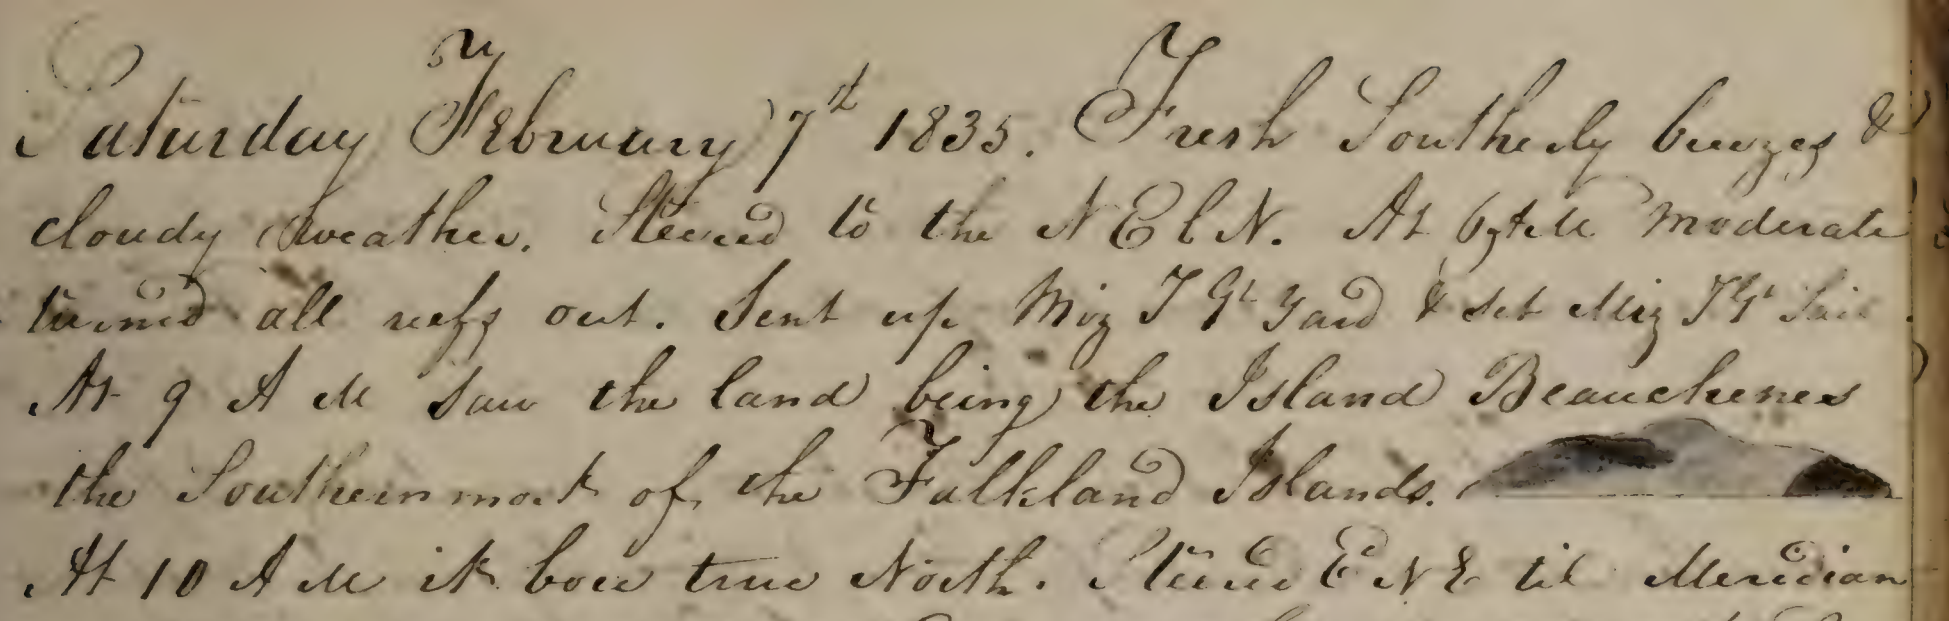 Saturday February 7th 1835. Fresh Southerly breezes &
cloudy weather. Steered to the N E b N. At 6 A M moderate
turned all reefs out. Sent up Miz T Gt Yard & set Miz T Gt Sail.
At 9 A M saw the land being the Island Beauchenes
the Southernmost of the Falkland Islands.
At 10 A M it bore true North. Steered E N E til Meridian